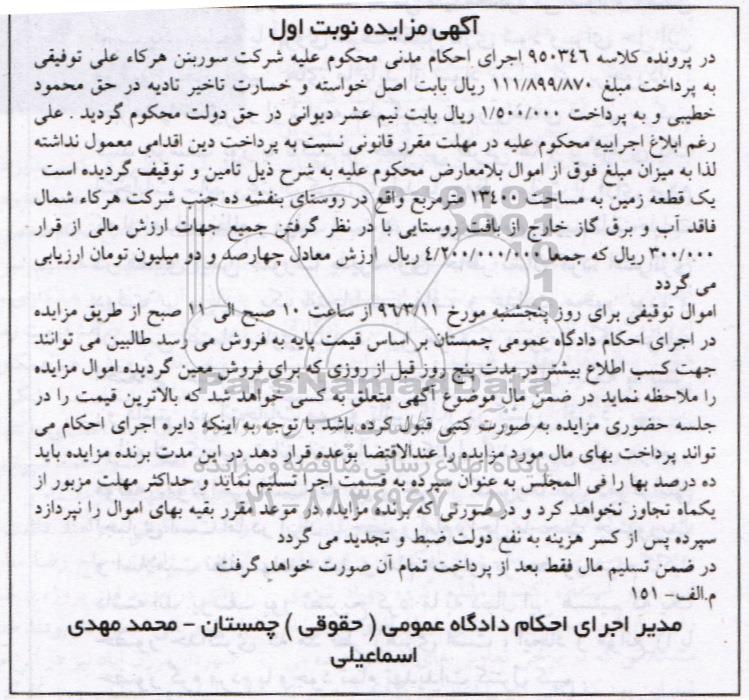 آگهی مزایده نوبت اول
در پرونده کلاسه ۹۵۰۳۴۶ اجرای احکام مدنی محکوم علیه شرکت سوربتن هرکاء علی توفیقی
به پرداخت مبلغ ۱۱۱/۸۹۹/۸۷۰ ریال بابت اصل خواسته و خسارت تاخیر تادیه در حق محمود
خطیبی و به پرداخت ۱/۵۰۰/۰۰۰ ریال بابت نیم عشر دیوانی در حق دولت محکوم گردید . علی
رغم ابلاغ اجراییه محکوم علیه در مهلت مقرر قانونی نسبت به پرداخت دین اقدامی معمول نداشته
لذا به میزان مبلغ فوق از اموال بلامعارض محکوم علیه به شرح ذیل تامین و توقیف گردیده است
یک قطعه زمین به مساحت ۱۳۴۰۰ مترمربع واقع در روستای بنفشه ده جنب شرکت هرکاء شمال
فاقد آب و برق گاز خارج از بافت روستایی با در نظر گرفتن جمیع جهات ارزش مالی از قرار
۳۰۰/۰۰۰ ریال که جمعا ۴/۲۰۰/۰۰۰/۰۰۰ ریال ارزش معادل چهارصد و دو میلیون تومان ارزیابی
می گردد
اموال توقیفی برای روز پنجشنبه مورخ ۹۶/۳/۱۱ از ساعت ۱۰ صبح الی ۱۱ صبح از طریق مزایده
در اجرای احکام دادگاه عمومی چمستان بر اساس قیمت پایه به فروش می رسد طالبین می توانند
جهت کسب اطلاع بیشتر در مدت پنج روز قبل از روزی که برای فروش معین گردیده اموال مزایده
را ملاحظه نماید در ضمن مال موضوع آگهی متعلق به کسی خواهد شد که بالاترین قیمت را در
جلسه حضوری مزایده به صورت کتبی قبول کرده باشد با توجه به اینکه دایره اجرای احکام می
تواند پرداخت بهای مال مورد مزایده را عندالاقتضا بوعده قرار دهد در این مدت برنده مزایده باید
ده درصد بها را فی المجلس به عنوان سپرده به قسمت اجرا تسلیم نماید و حداکثر مهلت مزبور از
یکماه تجاوز نخواهد کرد و در صورتی که برنده مزایده در موعد مقرر بقیه بهای اموال را نپردازد
سپرده پس از کسر هزینه به نفع دولت ضبط و تجدید می گردد
در ضمن تسلیم مال فقط بعد از پرداخت تمام آن صورت خواهد گرفت
م.الف- ۱۵۱
مدیر اجرای احکام دادگاه عمومی ( حقوقی ) چمستان - محمد مهدی
اسماعیلی
ParsNamadData
پایگاه اطلاع رسانی مناقصه و مزایده
۰۲۱-۸۸۳۴۹۶۷۰-۵